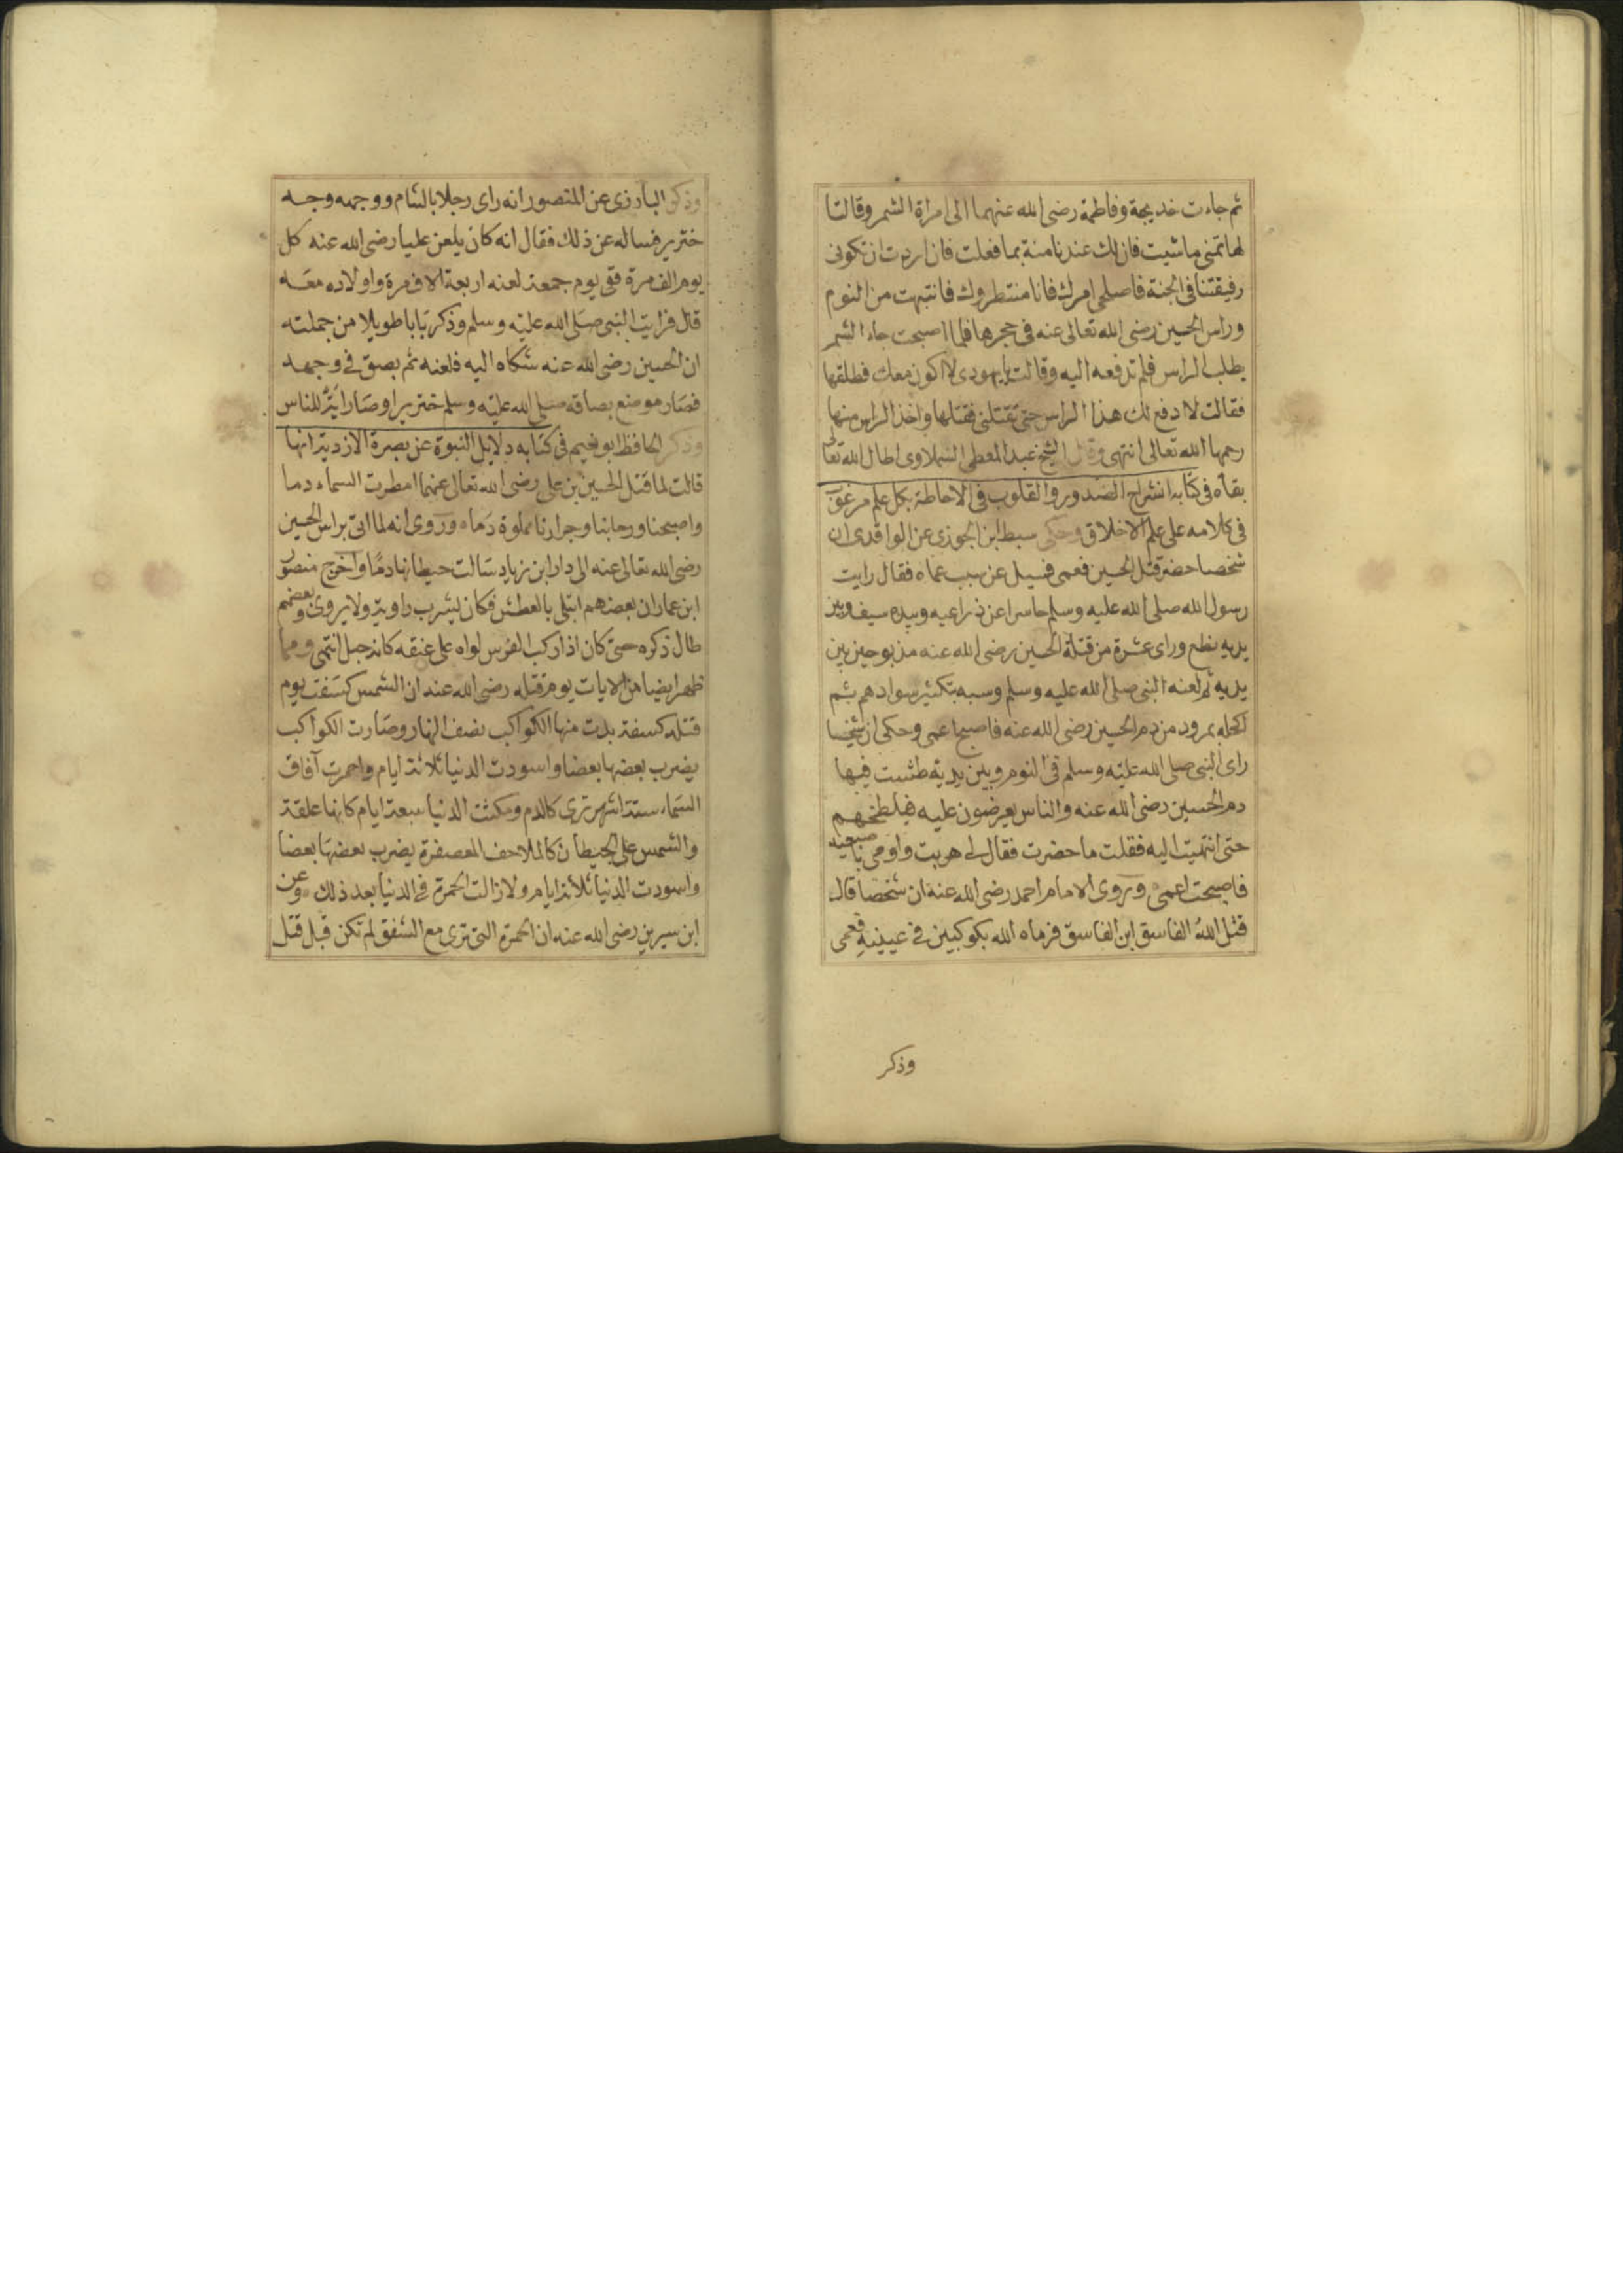 ثم جاءت خديجة وفاطمة رضى الله عنهما الى امراة الشمر وقالتا
لها تمنى ما شيت فان لك عندنا منة بما فعلت فان اردت ان تكونى
رفيقتنا فى الجنة فاصلحى امرك فانا منتظروك فانتبهت من النوم
وراس الحسين رضى الله تعالى عنه فى حجرها فلما اصبحت جاء الشمر
يطلب الراس فلم تدفعه اليه وقالت يا يهودى لا اكون معك فطلقها
فقالت لا ادفع لك هذا الراس حتى تقتلنى فقتلها واخذ الراس منها
رحمها الله تعالى انتهى وقال الشيخ عبد المعطى السملاوى اطال الله تعالى
بقاه فى كتابه انشراح الصدور والقلوب فى الاحاطة بكل علم مرغوب
فى كلامه على علم الاخلاق وحكى سبط ابن الجوزى عن الواقدى ان
شخصا حضر قتل الحسين فعمى فسيل عن سبب عماه فقال رايت
رسول الله صلى الله عليه وسلم حاسرا عن ذراعيه وبيده سيف وبين
يديه نطع وراى عشرة من قتلة الحسين رضى الله عنه مذبوحين بين
يديه ثم لعنه النبى صلى الله عليه وسلم وسبه بتكثير سوادهم ثم
اكحله بمرود من دم الحسين رضى الله عنه فاصبح اعمى وحكى ان شيخا
راى النبى صلى الله عليه وسلم فى النوم وبين يديه طشت فيها
دم الحسين رضى الله عنه والناس يعرضون عليه فيلطخهم
حتى انتهيت اليه فقلت ما حضرت فقال لى هويت واومى باصبعيه
فاصبحت اعمى وروى الامام احمد رضى الله عنه ان شخصا قال
قتل الله الفاسق ابن الفاسق فرماه الله بكوكبين فى عينيه فعمى
وذكر
وذكر البارزى عن المنصور انه راى رجلا بالشام ووجهه وجه
خنزير فساله عن ذلك فقال انه كان يلعن عليا رضى الله عنه كل
يوم الف مرة ففى يوم جمعة لعنه اربعة الاف مرة واولاده معه
قال فرايت النبى صلى الله عليه وسلم وذكر بابا طويلا من جملته
ان الحسين رضى الله عنه شكاه اليه فلعنه ثم بصق فى وجهه
فصار موضع بصاقه صلى الله عليه وسلم خنزيرا وصار اية للناس
وذكر الحافظ ابو نعيم فى كتابه دلايل النبوة عن بصرة الازدية انها
قالت لما قتل الحسين بن على رضى الله تعالى عنهما امطرت السماء دما
واصبحنا ورحابنا وجرارنا مملوة دماء وروى انه لما اتى براس الحسين
رضى الله تعالى عنه الى دار ابن زياد سالت حيطانها دما واخرج منصور
ابن عمار ان بعضهم ابتلى بالعطش فكان يشرب راوية ولا يروى وبعضهم
طال ذكره حتى كان اذا ركب الفرس لواه على عنقه كانه حبل انتهى ومما
ظهر ايضا من الايات يوم قتله رضى الله عنه ان الشمس كسفت يوم
قتله كسفة بدت منها الكواكب نصف النهار وصارت الكواكب
يضرب بعضها بعضا واسودت الدنيا ثلاثة ايام واحمرت آفاق
السماء ستة اشهر ترى كالدم ومكثت الدنيا سبعة ايام كانها علقة
والشمس على الحيطان كالملاحف المعصفرة يضرب بعضها بعضا
واسودت الدنيا ثلاثة ايام ولازالت الحمرة فى الدنيا بعد ذلك وعن
ابن سيرين رضى الله عنه ان الحمرة التى ترى مع الشفق لم تكن قبل قتل